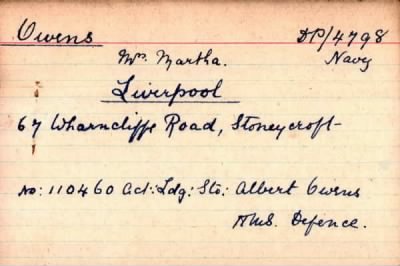 Owens DP/4798
Mrs. Martha. Navy
Liverpool
67 Wharncliffe Road, Stoneycroft
No: 110460 Act: Ldg: Sto: Albert Owens
HMS. Defence.